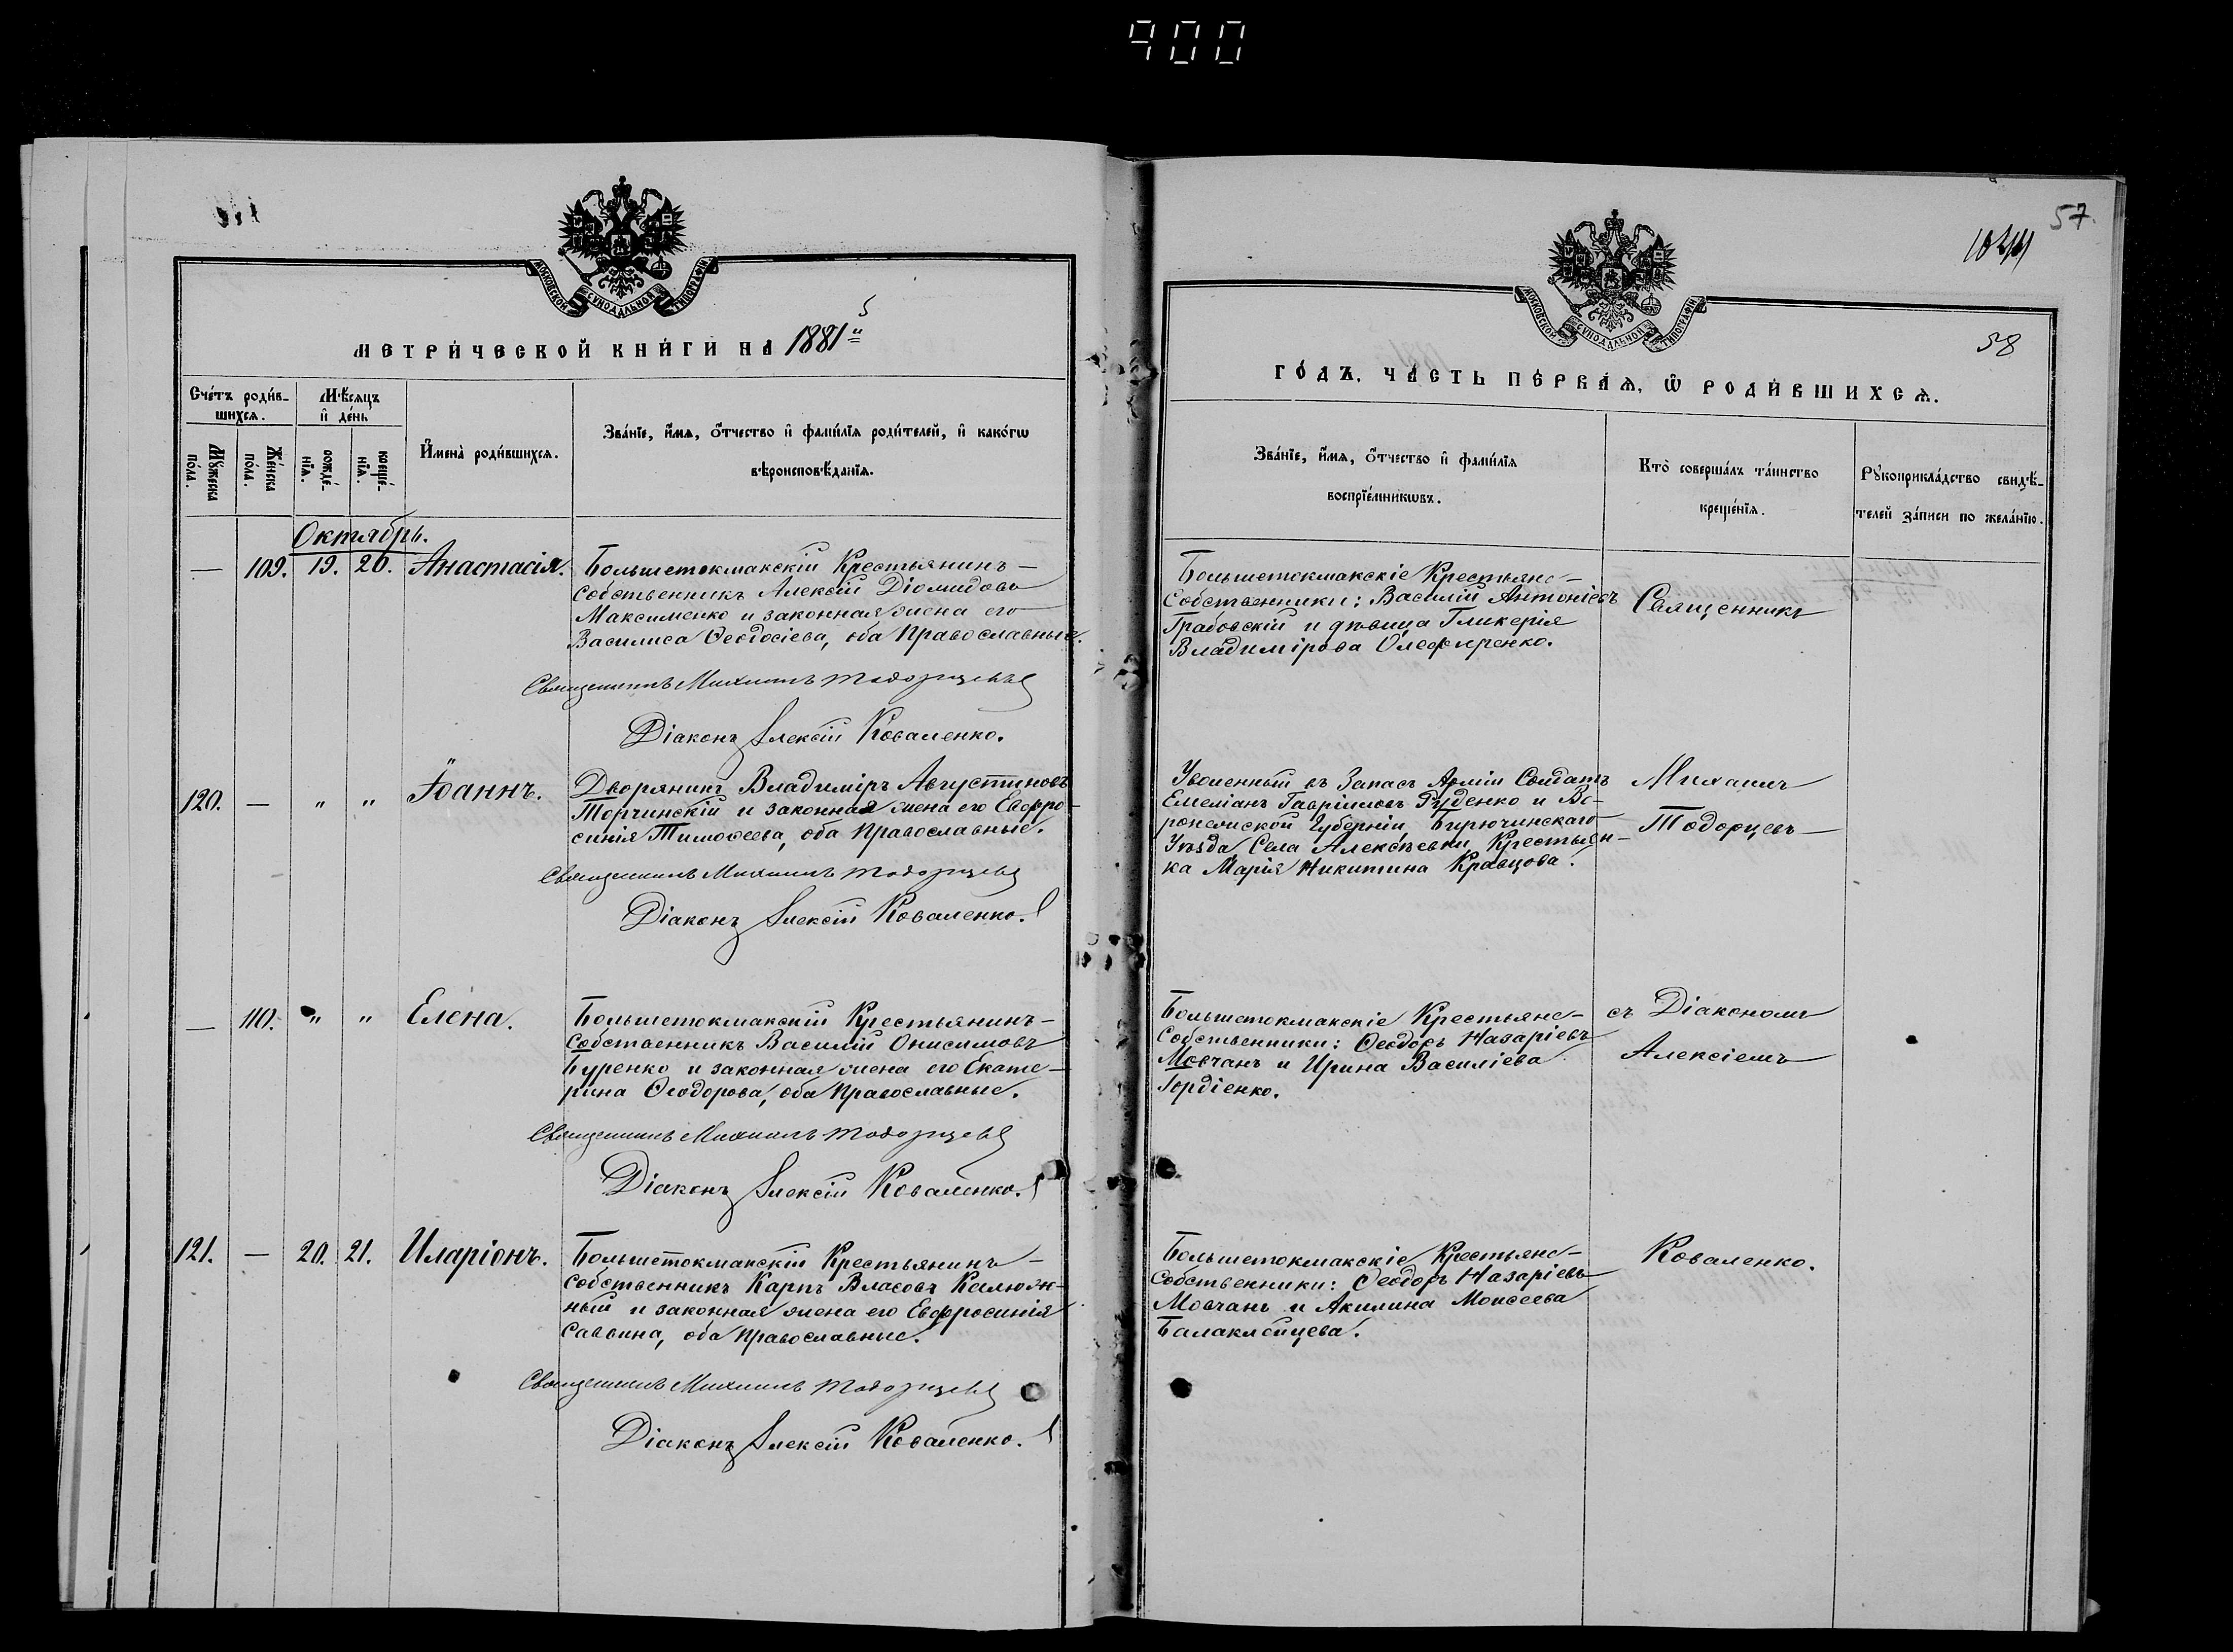 900
57.
58
МОСКОВСКОЙ СУНОДАЛЬНОЙ ТИПОГРАФІИ
МЕТРИ́ЧЕСКОЙ КНИ́ГИ НА 1881й
Сче́тъ роди́в-
шихсѧ.
Мѣ́сѧцъ
и҆ де́нь
Мꙋ́жеска по́ла.
Же́нска по́ла.
рожде́-
нїѧ.
креще́-
нїѧ.
И҆мена̀ роди́вшихсѧ.
Зва́нїе, и҆́мѧ, о҆́тчество и҆ фами́лїѧ роди́телей, и҆ како́гѡ
вѣроисповѣ́данїѧ.
Октябрь.
— 109. 19. 20. Анастасія.
Большетокмакскій Крестьянинъ-
собственникъ Алексій Діомидовъ
Максименко и законная жена его
Василиса Ѳеодосіева, оба Православные.
Священникъ Михаилъ Тодорцевъ
Діаконъ Алексій Коваленко.
120. — " " Іоаннъ.
Дворянинъ Владиміръ Августиновъ
Торчинскій и законная жена его Евфро-
синія Тимоѳеева, оба Православные.
Священникъ Михаилъ Тодорцевъ
Діаконъ Алексій Коваленко.
— 110. " " Елена.
Большетокмакскій Крестьянинъ-
Собственникъ Василій Онисимовъ
Буренко и законная жена его Екате-
рина Ѳеодорова, оба Православные.
Священникъ Михаилъ Тодорцевъ
Діаконъ Алексій Коваленко.
121. — 20. 21. Иларіонъ.
Большетокмакскій Крестьянинъ-
собственникъ Карпъ Власовъ Калюж-
ный и законная жена его Евфросинія
Саввина, оба Православные.
Священникъ Михаилъ Тодорцевъ
Діаконъ Алексій Коваленко.
МОСКОВСКОЙ СУНОДАЛЬНОЙ ТИПОГРАФІИ
ГО́ДЪ, ЧА́СТЬ ПЕ́РВАѦ, Ѡ҆ РОДИ́ВШИХСѦ.
Зва́нїе, и҆́мѧ, о҆́тчество и҆ фами́лїѧ
воспрїе́мникѡвъ.
Кто̀ соверша́лъ та́инство
креще́нїѧ.
Рꙋкоприкла́дство свидѣ́-
телей за́писи по жела́нїю.
Большетокмакскіе Крестьяне-
Собственники: Василій Антоніевъ
Грабовскій и дѣвица Гликерія
Владимірова Олефиренко.
Священникъ
Уволенный въ Запасъ Арміи Солдатъ
Емеліанъ Гавріиловъ Руденко и Во-
ронежской Губерніи Бирючинскаго
Уѣзда Села Алексѣевки Крестьян-
ка Марія Никитина Кравцова.
Михаилъ
Тодорцевъ
Большетокмакскіе Крестьяне-
Собственники: Ѳеодоръ Назаріевъ
Мовчанъ и Ирина Василіева
Гордіенко.
съ Діакономъ
Алексіемъ
Большетокмакскіе Крестьяне-
Собственники: Ѳеодоръ Назаріевъ
Мовчанъ и Акилина Моисеева
Балаклейцева.
Коваленко.